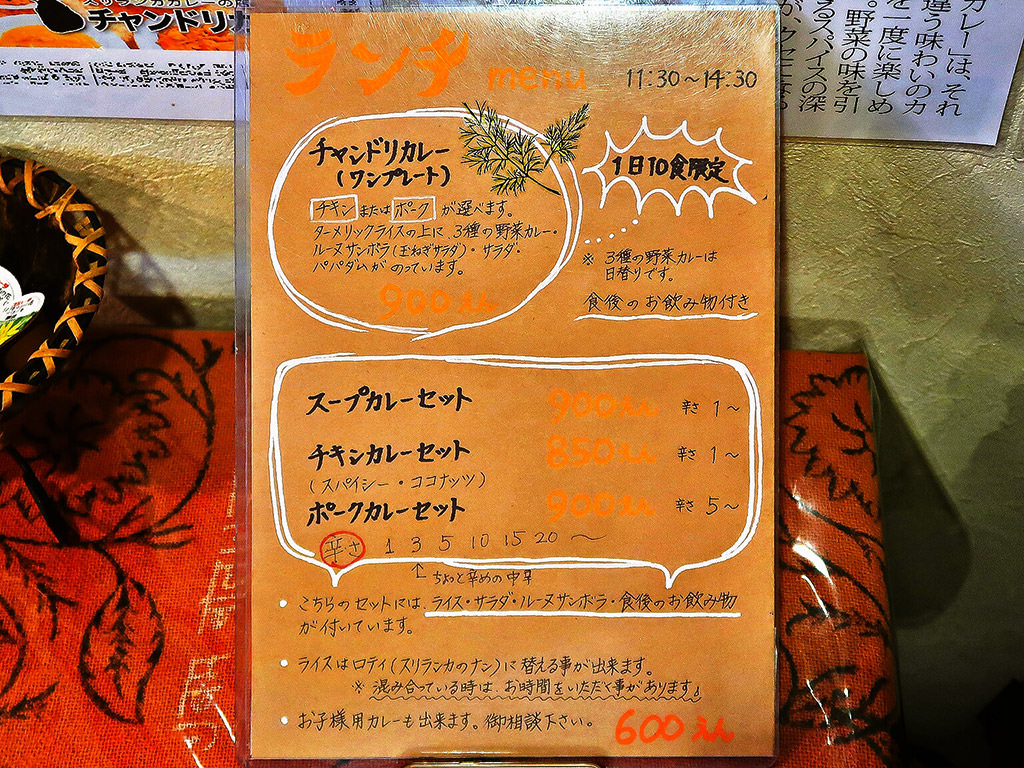 チャンドリカ
ランチ menu 11:30～14:30
チャンドリカレー
(ワンプレート)
チキン または ポーク が選べます。
ターメリックライスの上に、3種の野菜カレー・
ルーヌサンボラ(玉ねぎサラダ)・サラダ・
パパダムがのっています。
900えん
1日10食限定
※ 3種の野菜カレーは
日替りです。
食後のお飲み物付き
スープカレーセット 900えん 辛さ 1～
チキンカレーセット 850えん 辛さ 1～
(スパイシー・ココナッツ)
ポークカレーセット 900えん 辛さ 5～
辛さ 1 3 5 10 15 20 ～
ちょっと辛めの中辛
• こちらのセットには、ライス・サラダ・ルーヌサンボラ・食後のお飲み物
が付いています。
• ライスはロティ(スリランカのナン)に替える事が出来ます。
※ 混み合っている時は、お時間をいただく事があります。
• お子様用カレーも出来ます。御相談下さい。 600えん
カレー」は、それ
違う味わいのカ
を一度に楽しめ
。野菜の味を引
るスパイスの深